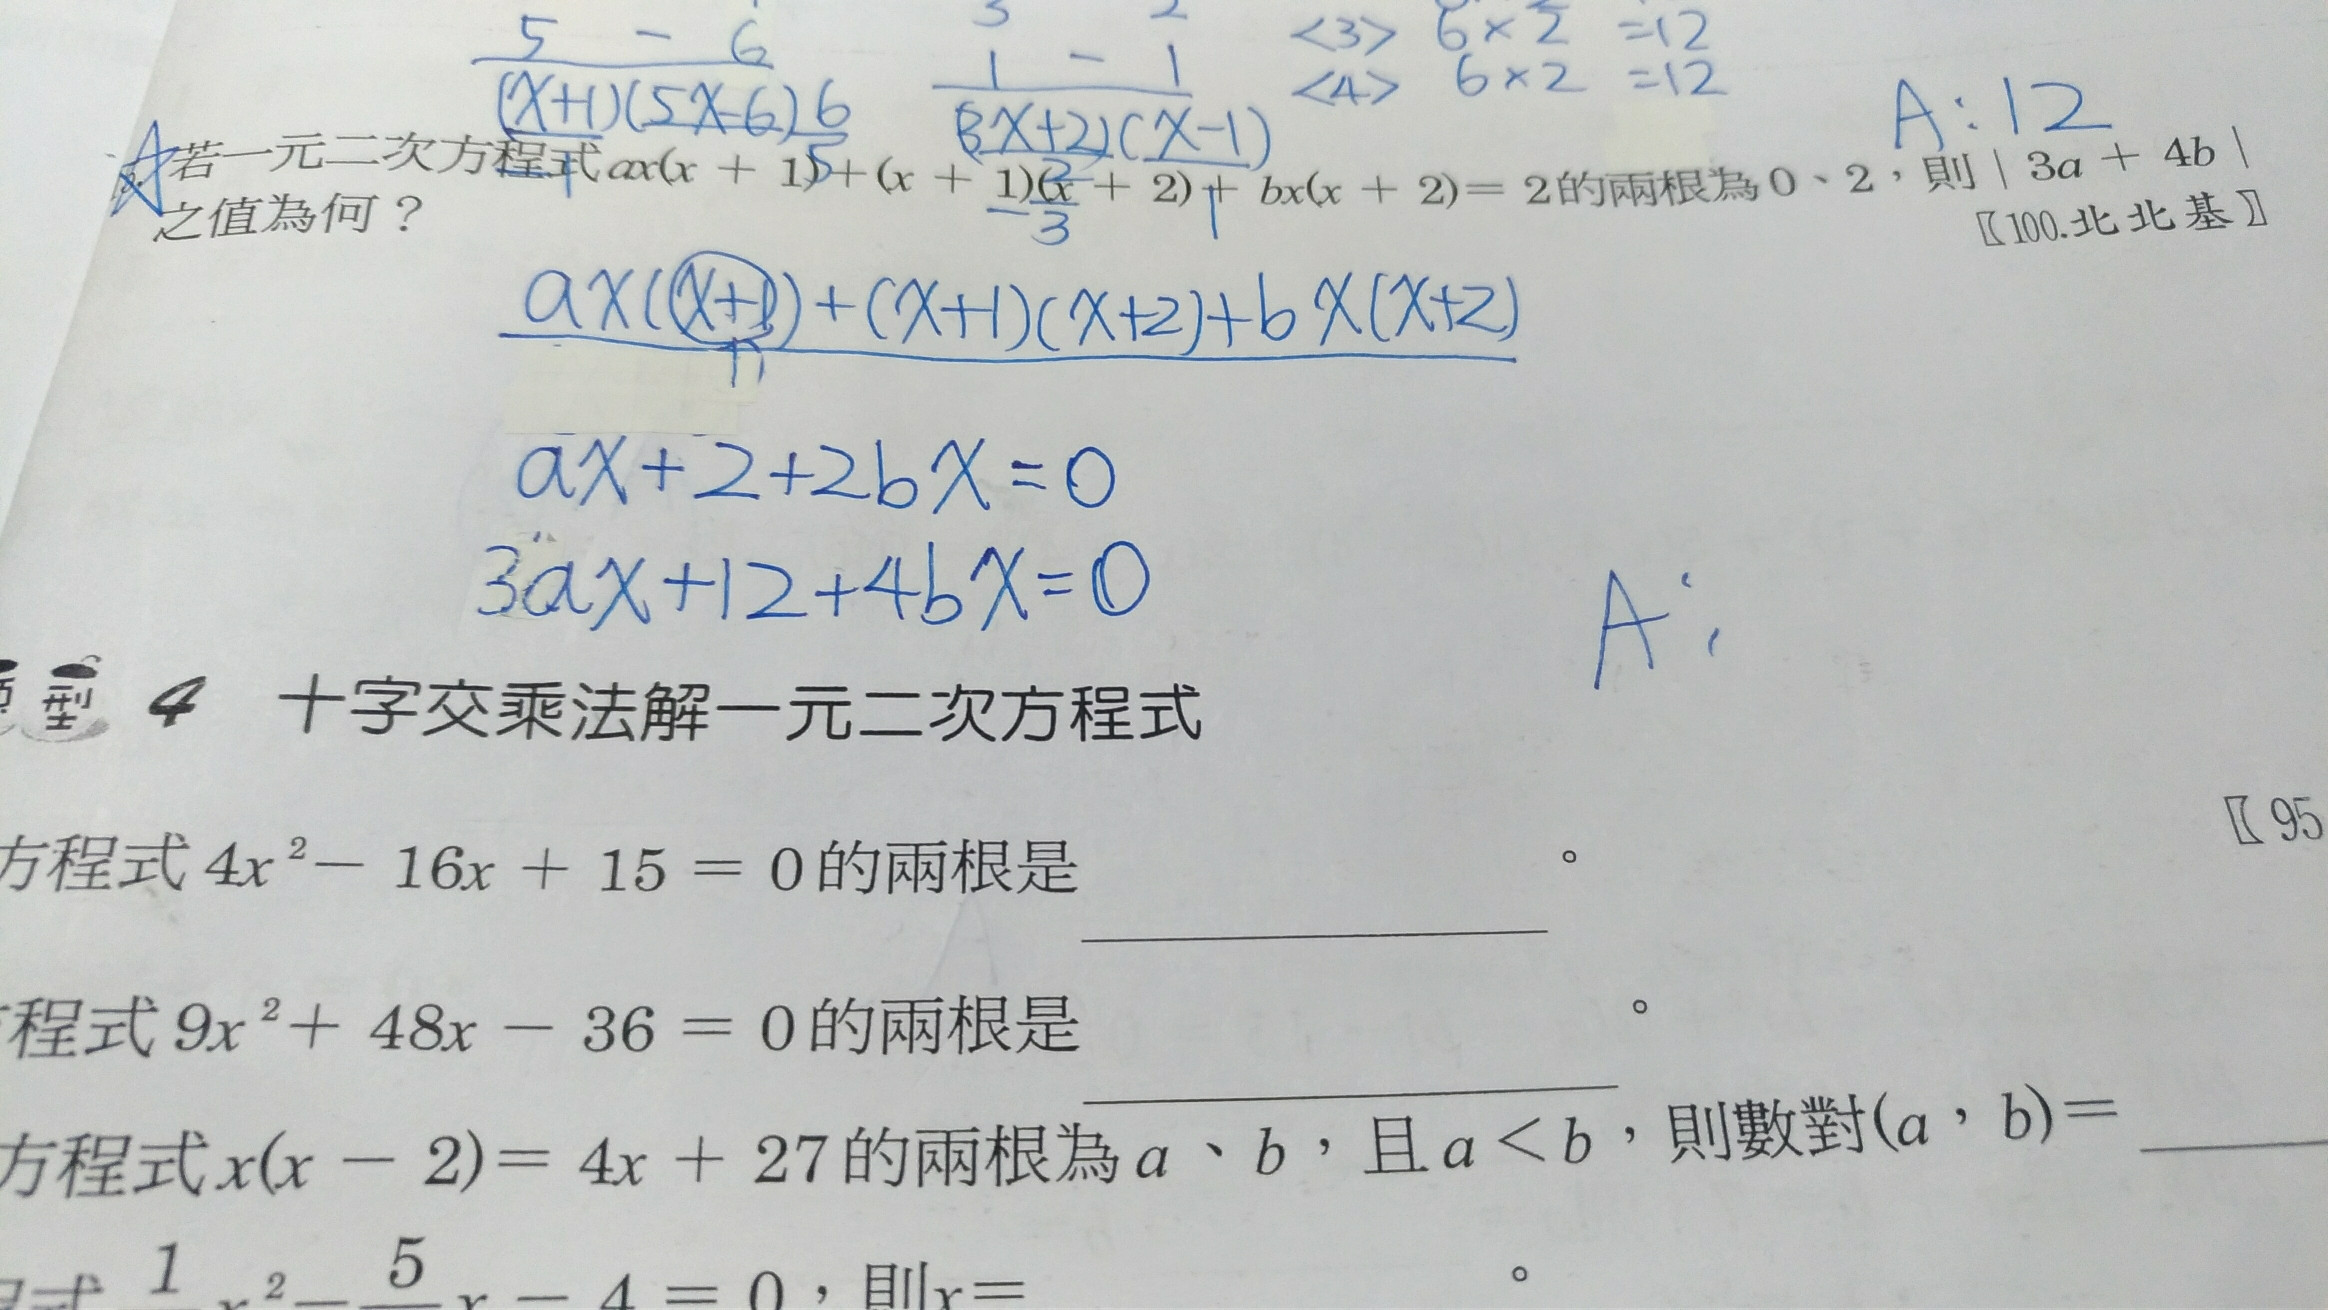 5 - 6
(x+1)(5x-6) 6
1 - 1
(3x+2)(x-1)
<3> 6×2 =12
<4> 6×2 =12
A:12
若一元二次方程式ax(x + 1)+(x + 1)(x + 2)+ bx(x + 2)= 2的兩根為0、2，則| 3a + 4b |
之值為何？
〖100.北北基〗
ax(x+1)+(x+1)(x+2)+bx(x+2)
ax+2+2bx=0
3ax+12+4bx=0
A:
型 4 十字交乘法解一元二次方程式
〖95
方程式4x²− 16x + 15 = 0的兩根是 。
程式9x²+ 48x − 36 = 0的兩根是 。
方程式x(x − 2)= 4x + 27的兩根為a、b，且a < b，則數對(a，b)=
x²− 5 x − 4 = 0，則x= 。